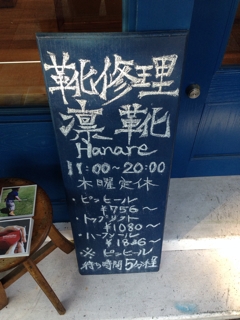 靴修理
凛靴
Hanare
11:00~20:00
木曜定休
・ピンヒール
¥756~
・トップリフト
¥1080~
・ハーフソール
¥1846~
※ ピンヒール
待ち時間5分程